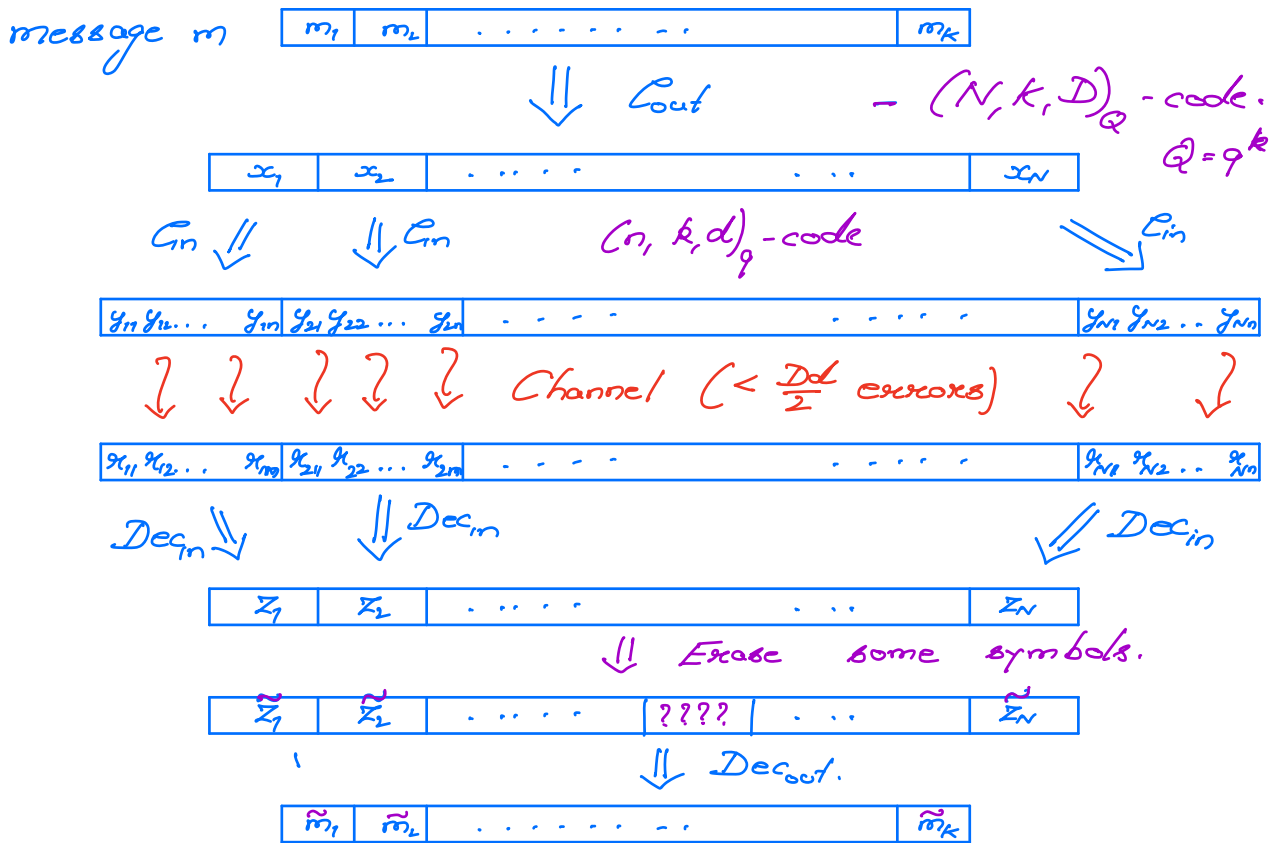 message m m₁ m₂ . . . . . . . . m_K
⇓ C_out - (N, K, D)_Q - code.
Q = q^k
x₁ x₂ . . . . . . . . x_N
C_in ⇓ ⇓ C_in (n, k, d)_q - code C_in
y₁₁ y₁₂ ... y₁ₙ y₂₁ y₂₂ ... y₂ₙ . . . . . . . . . y_N1 y_N2 .. y_Nn
Channel (< Dd/2 errors)
r₁₁ r₁₂ ... r₁ₙ r₂₁ r₂₂ ... r₂ₙ . . . . . . . . . r_N1 r_N2 .. r_Nn
Dec_in ⇓ ⇓ Dec_in Dec_in
z₁ z₂ . . . . . . . . z_N
⇓ Erase some symbols.
z̃₁ z̃₂ . . . . . ???? . . . z̃_N
⇓ Dec_out.
m̃₁ m̃₂ . . . . . . . . m̃_K